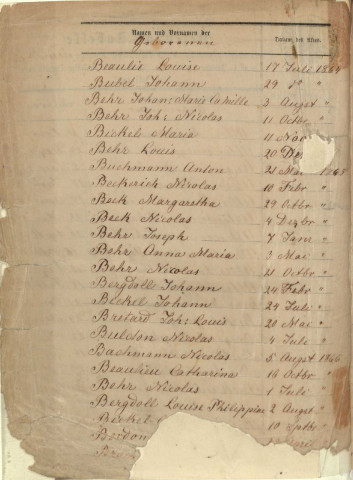 Namen und Vornamen der Geborenen
Datum des Aktes.
Beaulié Louise 17 Juli 1864
Bickel Johann 29 d° "
Behr Johan: Maria Camille 3 Augst "
Behr Joh: Nicolas 11 Octbr "
Bickel Maria 11 Nov
Behr Louis 20 De
Buchmann Anton 21 Mai 1865
Bockerich Nicolas 10 Febr "
Beck Margaretha 29 Octbr "
Beck Nicolas 4 Dezbr "
Behr Joseph 7 Janr "
Behr Anna Maria 3 Mai "
Behr Nicolas 21 Octbr "
Bergdoll Johann 24 Febr "
Bickel Johann 24 Juli "
Joh: Louis 20 Mai "
Nicolas 4 Juli "
Bachmann Nicolas 5 Augst 1866
Beaulieu Catharina 16 Octbr "
Behr Nicolas 1 Juli "
Bergdoll Louise Philippine 2 Augst "
Bickel 10 Sptbr "
Bordon